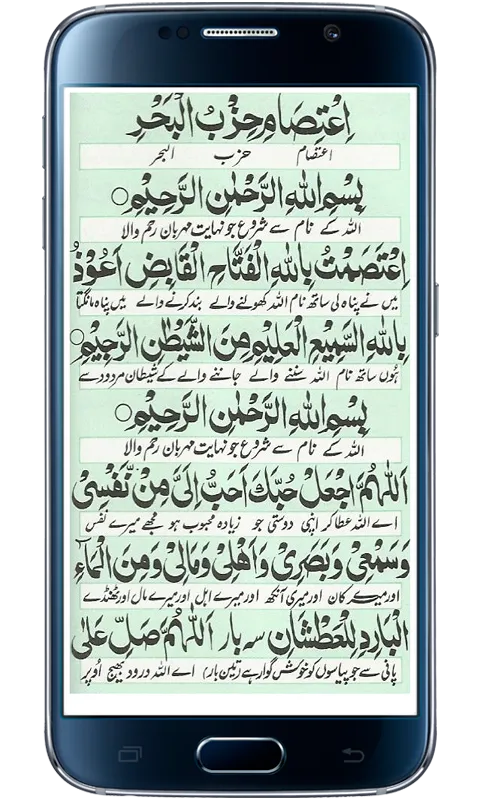 اِعْتِصَامِ حِزْبُ الْبَحْرِ
اعتصام حزب البحر
بِسْمِ اللهِ الرَّحْمٰنِ الرَّحِيْمِ○
اللہ کے نام سے شروع جو نہایت مہربان رحم والا
اِعْتَصَمْتُ بِاللهِ الْفَتَّاحِ الْقَابِضِ اَعُوْذُ
میں نے پناہ لی ساتھ نام اللہ کھولنے والے بند کرنے والے میں پناہ مانگتا
بِاللهِ السَّمِيْعِ الْعَلِيْمِ مِنَ الشَّيْطٰنِ الرَّجِيْمِ○
ہُوں ساتھ نام اللہ سننے والے جاننے والے کے شیطان مردود سے
بِسْمِ اللهِ الرَّحْمٰنِ الرَّحِيْمِ○
اللہ کے نام سے شروع جو نہایت مہربان رحم والا
اَللّٰهُمَّ اجْعَلْ حُبَّكَ اَحَبَّ اِلَیَّ مِنْ نَّفْسِیْ
اے اللہ عطا کر اپنی دوستی جو زیادہ محبوب ہو مجھے میرے نفس
وَسَمْعِیْ وَبَصَرِیْ وَاَهْلِیْ وَمَالِیْ وَمِنَ الْمَآءِ
اور میرے کان اور میری آنکھ اور میرے اہل اور میرے مال اور ٹھنڈے
الْبَارِدِ لِلْعَطْشَانِ سہ بار اَللّٰهُمَّ صَلِّ عَلٰی
پانی سے جو پیاسوں کو خوش گوار ہے (تین بار) اے اللہ درود بھیج اُوپر